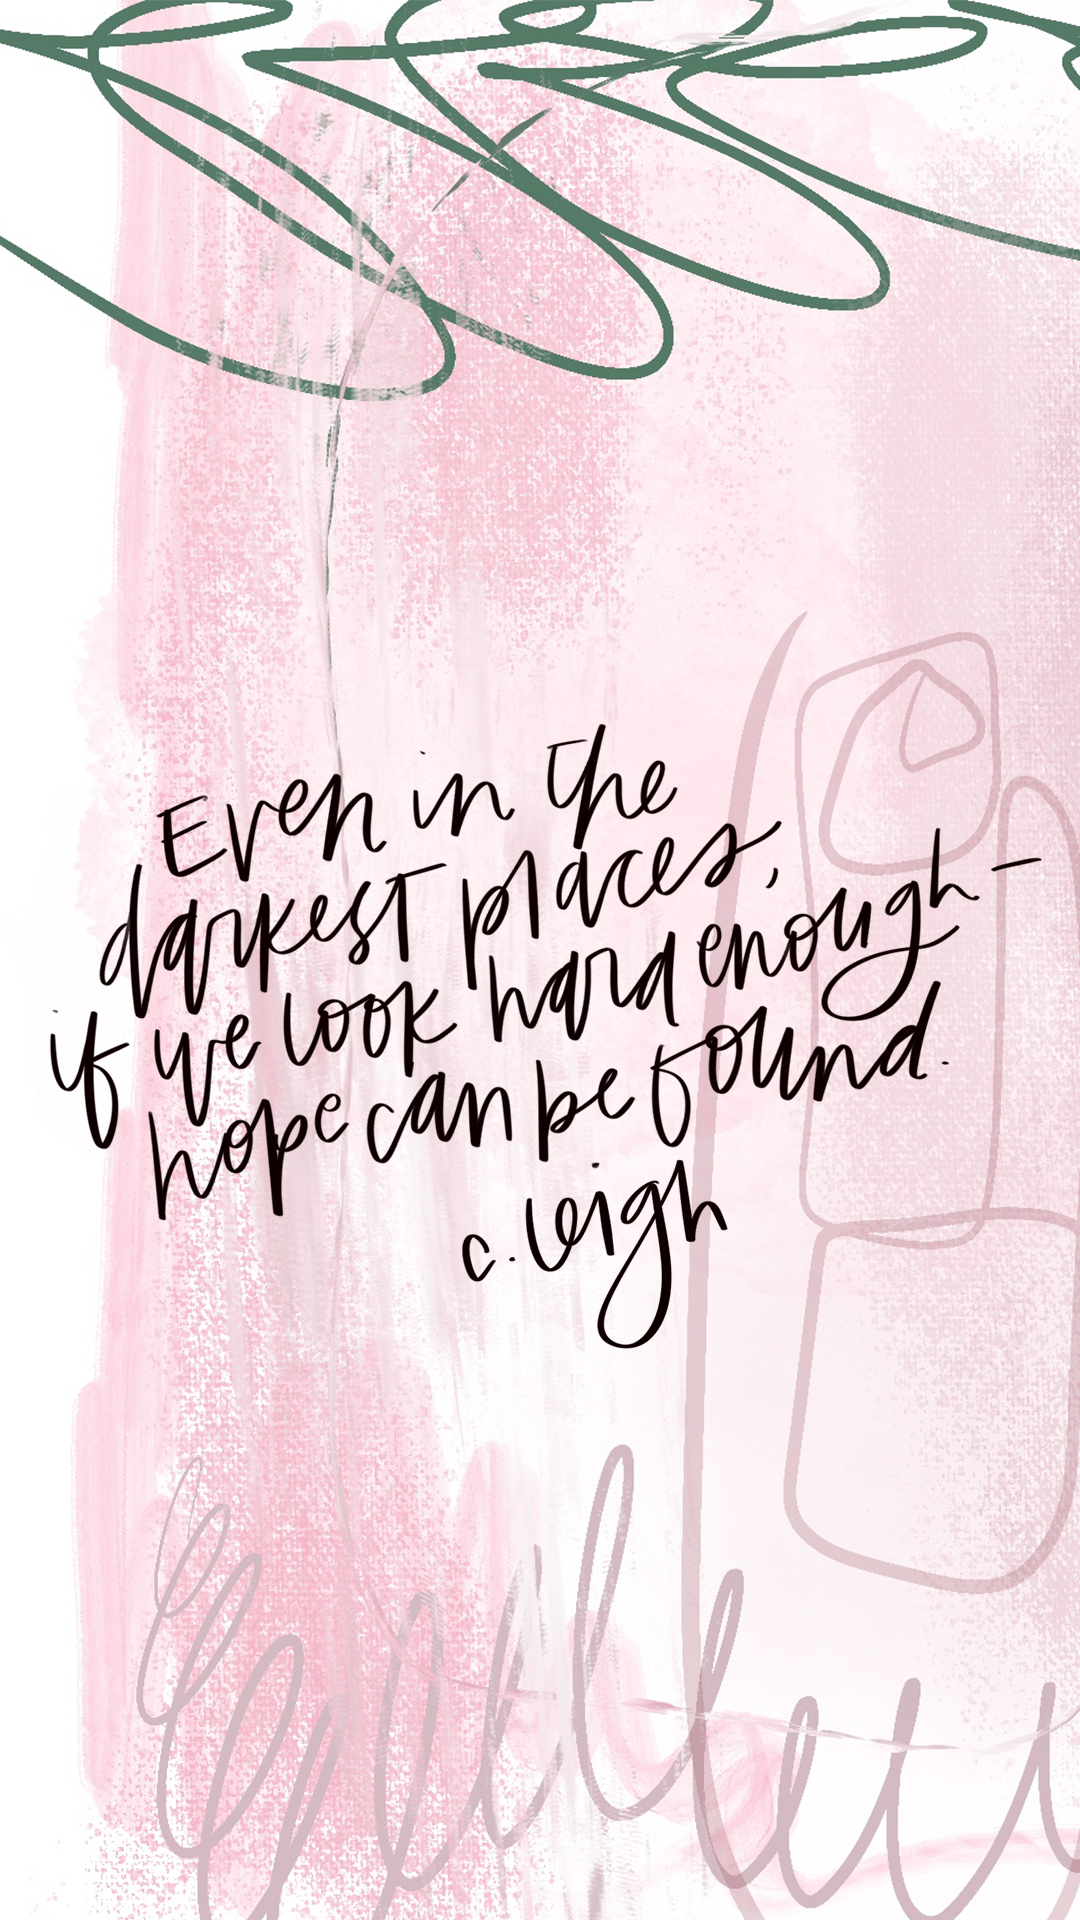 Even in the
darkest places,
if we look hard enough -
hope can be found.
c. leigh